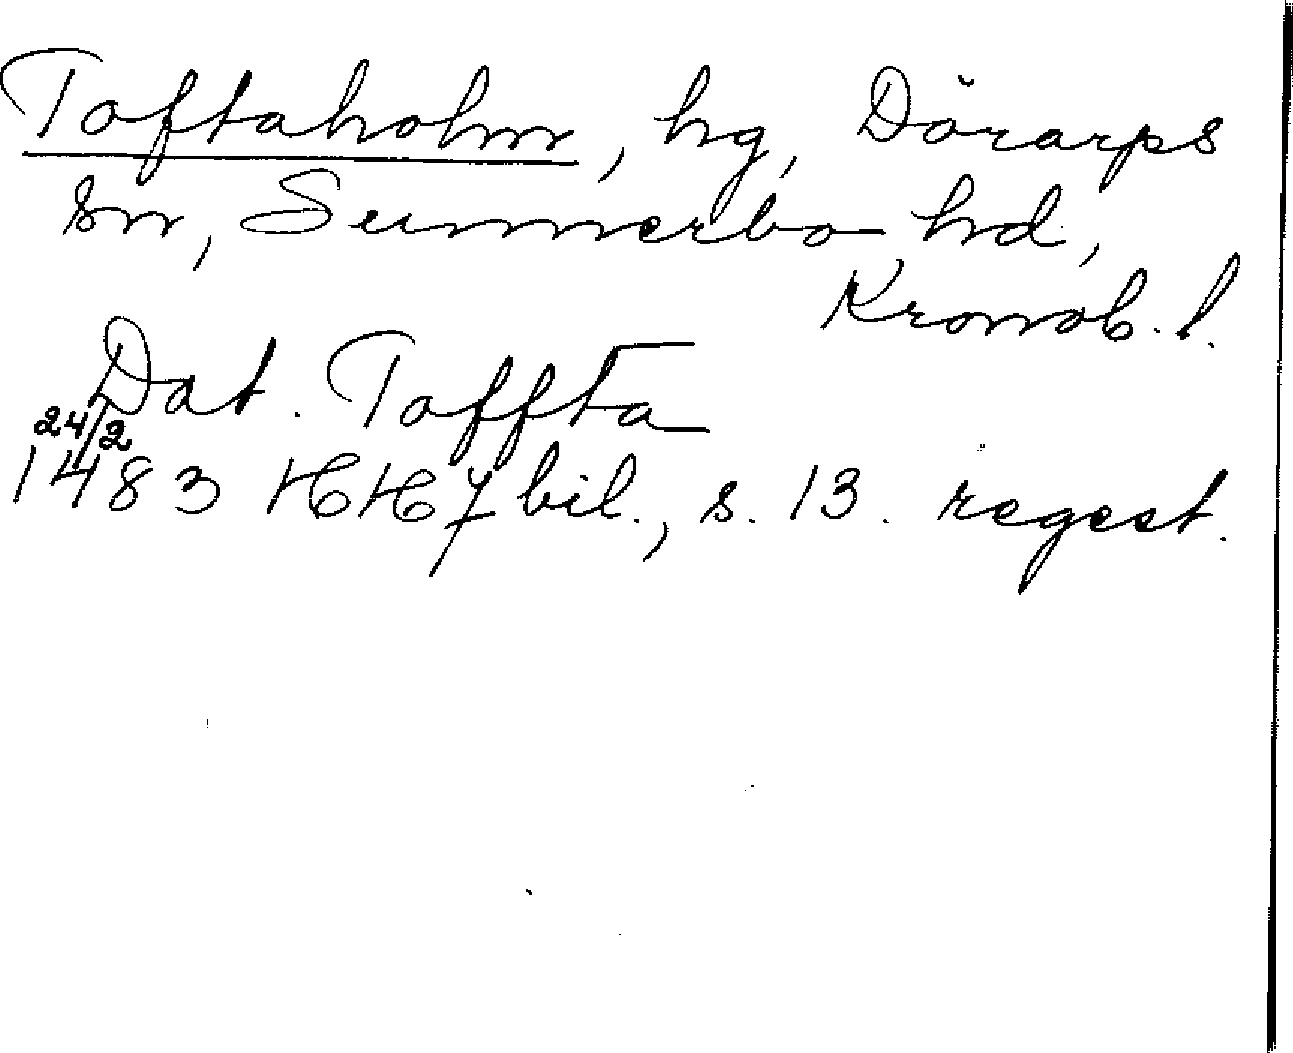 Toftaholm, hg, Dörarps
sn, Sunnerbo hd,
Kronob. l.
Dat. Toffta
24/2
1483 HH 7 bil., s. 13. regest.